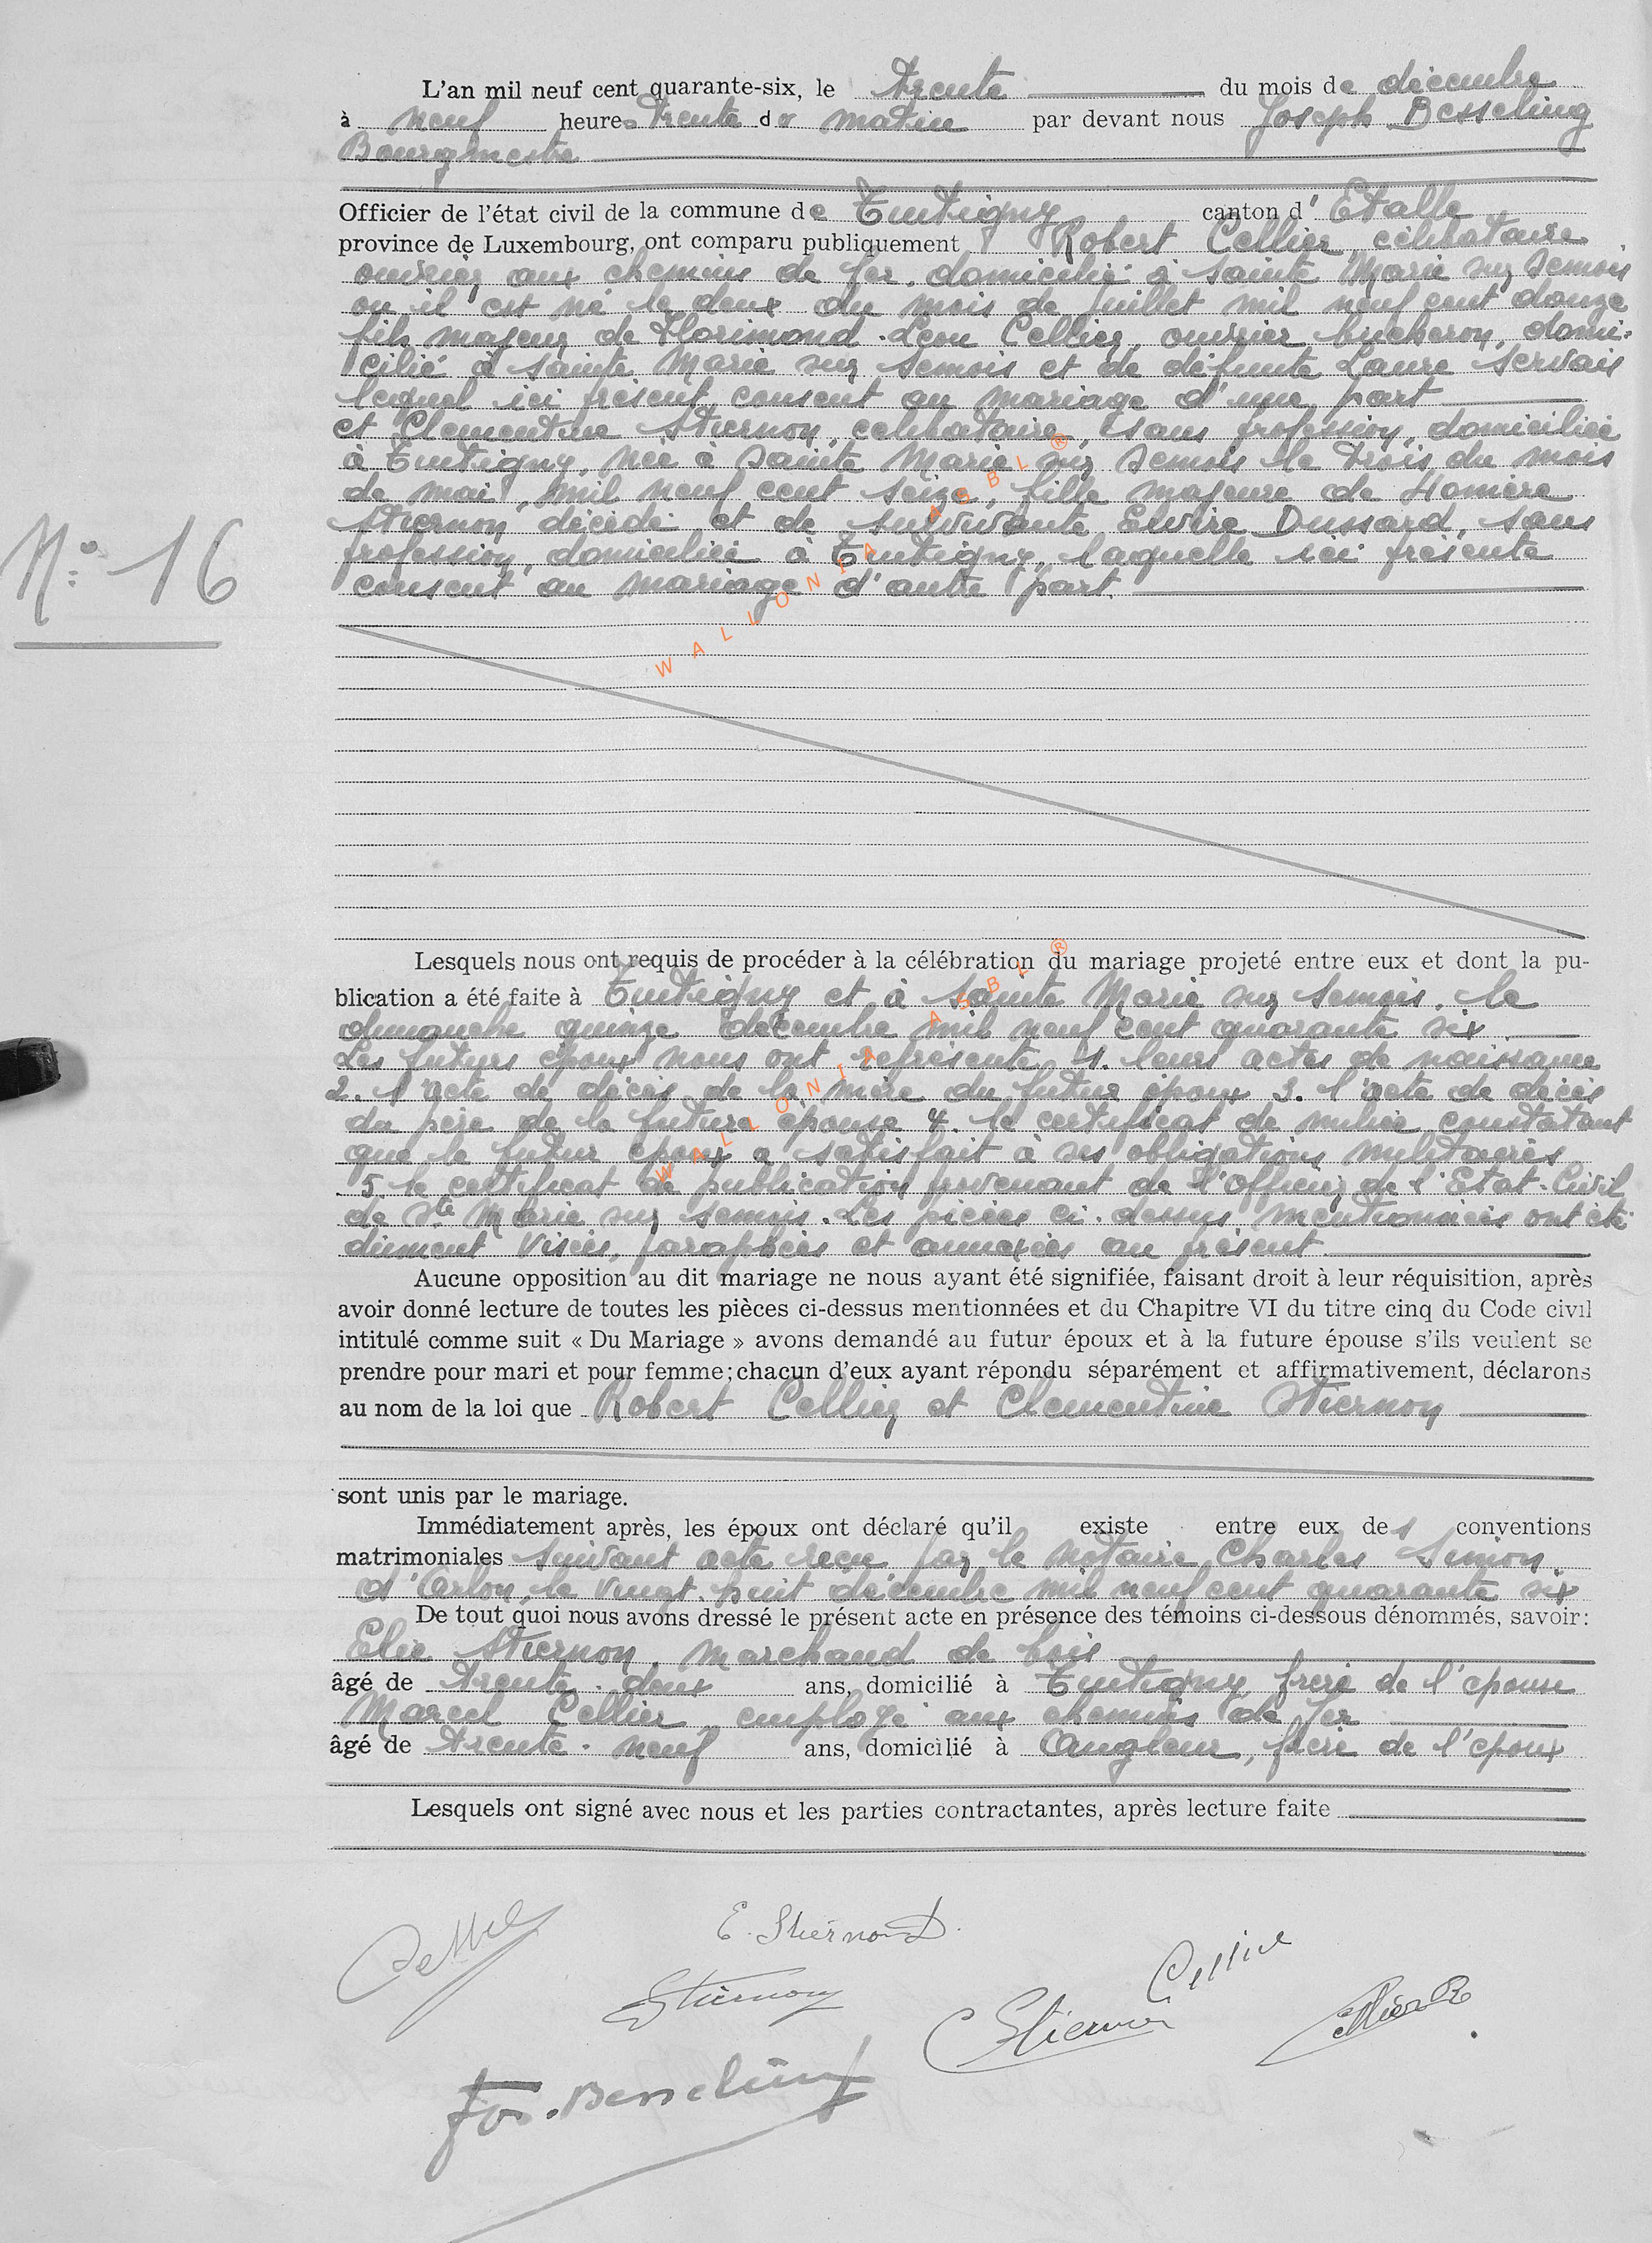 L'an mil neuf cent quarante-six, le trente du mois de décembre
à neuf heures trente du matin par devant nous Joseph Besseling
Bourgmestre
Officier de l'état civil de la commune de Tintigny canton d' Etalle
province de Luxembourg, ont comparu publiquement Robert Cellier, célibataire
ouvrier aux chemins de fer, domicilié à Sainte Marie sur Semois
ou il est né le deux du mois de juillet mil neuf cent douze
fils majeur de Florimond-Léon Cellier, ouvrier bucheron, domi-
cilié à Sainte Marie sur Semois et de défunte Laure Servais
lequel ici présent consent au mariage d'une part
et Clementine Stiernon, célibataire, sans profession, domiciliée
à Tintigny, née à Sainte Marie sur Semois le trois du mois
de mai mil neuf cent seize, fille majeure de Homère
Stiernon, décédé et de survivante Elvire Dussard, sans
profession, domiciliée à Tintigny, laquelle ici présente
consent au mariage d'autre part.
N° 16
WALLONIA ASBL ®
Lesquels nous ont requis de procéder à la célébration du mariage projeté entre eux et dont la pu-
blication a été faite à Tintigny et à Sainte Marie sur Semois, le
dimanche quinze décembre mil neuf cent quarante six
Les futurs époux nous ont représenté 1. leurs actes de naissance
2. l'acte de décès de la mère du futur époux 3. l'acte de décès
du père de la future épouse 4. le certificat de milice constatant
que le futur époux a satisfait à ses obligations militaires
5. le certificat de publication provenant de l'Officier de l'Etat-Civil
de Ste Marie sur Semois. Les pièces ci-dessus mentionnées ont été
dûment visées, paraphées et annexées au présent
WALLONIA ASBL ®
Aucune opposition au dit mariage ne nous ayant été signifiée, faisant droit à leur réquisition, après
avoir donné lecture de toutes les pièces ci-dessus mentionnées et du Chapitre VI du titre cinq du Code civil
intitulé comme suit « Du Mariage » avons demandé au futur époux et à la future épouse s'ils veulent se
prendre pour mari et pour femme; chacun d'eux ayant répondu séparément et affirmativement, déclarons
au nom de la loi que Robert Cellier et Clementine Stiernon
sont unis par le mariage.
Immédiatement après, les époux ont déclaré qu'il existe entre eux des conventions
matrimoniales suivant acte reçu par le notaire Charles Simon
d'Arlon, le vingt-huit décembre mil neuf cent quarante six
De tout quoi nous avons dressé le présent acte en présence des témoins ci-dessous dénommés, savoir:
Elie Stiernon, marchand de bois
âgé de trente-deux ans, domicilié à Tintigny, frère de l'epouse
Marcel Cellier, employé aux chemins de fer
âgé de trente-neuf ans, domicilié à Angleur, frère de l'epoux
Lesquels ont signé avec nous et les parties contractantes, après lecture faite
E. Stiernon D.
Cellier
Stiernon
C Stiernon
Cellier R
Jos. Besseling